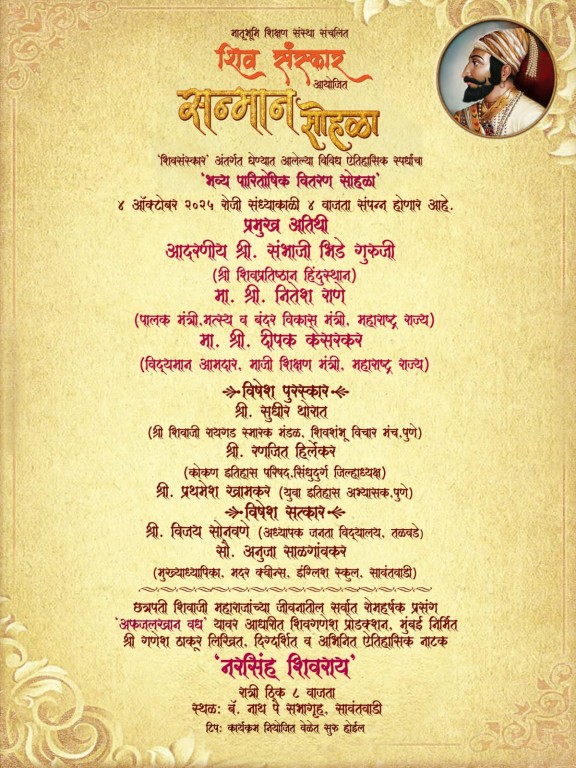 मातृभूमि शिक्षण संस्था संचलित
शिव संस्कार
आयोजित
सन्मान सोहळा
'शिवसंस्कार' अंतर्गत घेण्यात आलेल्या विविध ऐतिहासिक स्पर्धांचा
'भव्य पारितोषिक वितरण सोहळा'
४ ऑक्टोबर २०२५ रोजी संध्याकाळी ४ वाजता संपन्न होणार आहे.
प्रमुख अतिथी
आदरणीय श्री. संभाजी भिडे गुरुजी
(श्री शिवप्रतिष्ठान हिंदुस्थान)
मा. श्री. नितेश राणे
(पालक मंत्री,मत्स्य व बंदर विकास मंत्री, महाराष्ट्र राज्य)
मा. श्री. दीपक केसरकर
(विद्यमान आमदार, माजी शिक्षण मंत्री, महाराष्ट्र राज्य)
विषेश पुरस्कार
श्री. सुधीर थोरात
(श्री शिवाजी रायगड स्मारक मंडळ, शिवशंभू विचार मंच,पुणे)
श्री. रणजित हिर्लेकर
(कोकण इतिहास परिषद,सिंधुदुर्ग जिल्हाध्यक्ष)
श्री. प्रथमेश खामकर (युवा इतिहास अभ्यासक,पुणे)
विषेश सत्कार
श्री. विजय सोनवणे (अध्यापक जनता विद्यालय, तळवडे)
सौ. अनुजा साळगांवकर
(मुख्याध्यापिका, मदर क्वीन्स, इंग्लिश स्कुल, सावंतवाडी)
छत्रपती शिवाजी महाराजांच्या जीवनातील् सर्वात रोमहर्षक प्रसंग
'अफजलखान वध' यावर आधारीत शिवगणेश प्रोडक्शन, मुंबई निर्मित
श्री गणेश ठाकूर लिखित, दिग्दर्शित व अभिनित ऐतिहासिक नाटक
'नरसिंह शिवराय'
रात्री ठिक ८ वाजता
स्थळ: बॅ. नाथ पै सभागृह, सावंतवाडी
टिप: कार्यक्रम नियोजित वेळेत सुरु होईल